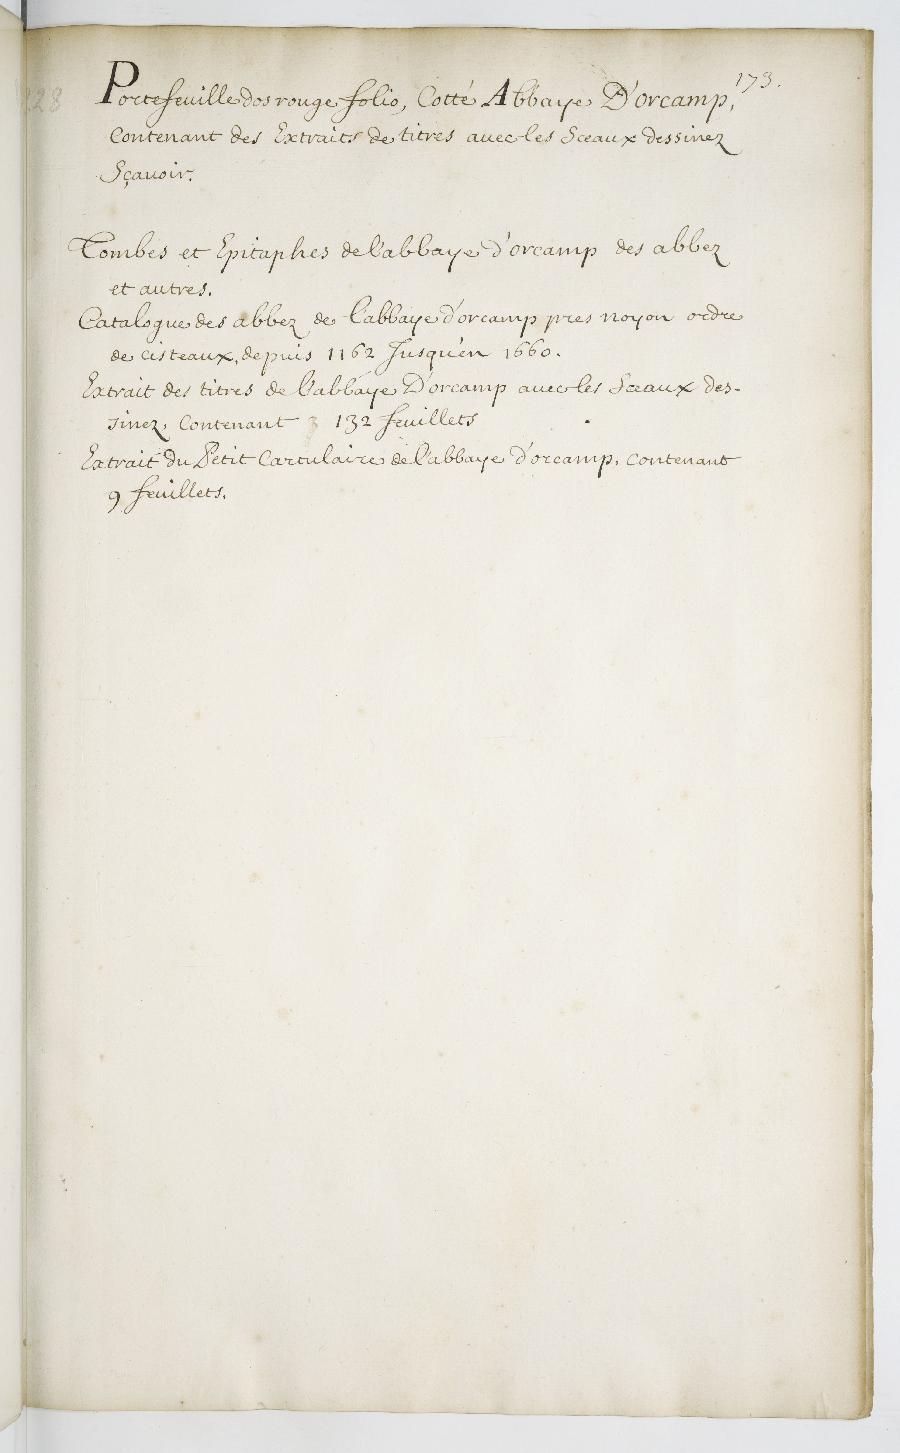 173.
Portefeuille dos rouge folio, Cotté Abbaye D'orcamp,
Contenant des Extraits de titres avec les Sceaux dessinez
Sçavoir.
Tombes et Epitaphes de l'abbaye d'orcamp des abbez
et autres.
Catalogue des abbez de l'abbaye d'orcamp pres noyon ordre
de cisteaux, depuis 1162 Jusqu'en 1660.
Extrait des titres de l'abbaye D'orcamp avec les Sceaux des-
sinez, Contenant 132 feuillets
Extrait du Petit Cartulaire de l'abbaye d'orcamp, contenant
9 feuillets.